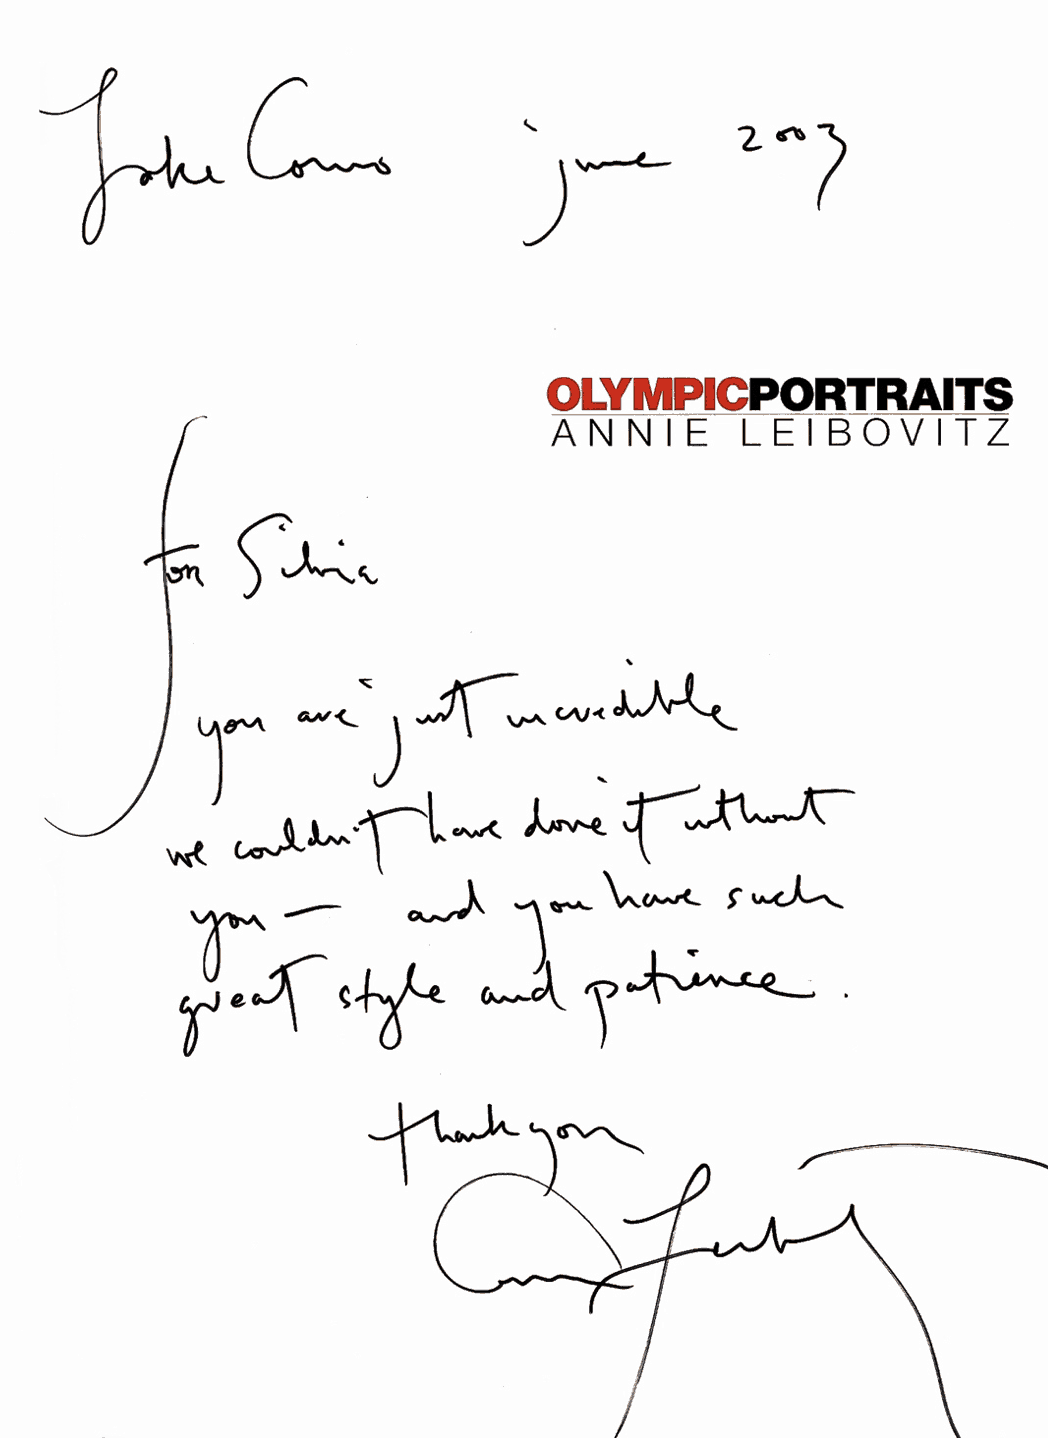 Lake Como june 2003
OLYMPICPORTRAITS
ANNIE LEIBOVITZ
for Silvia
you are just incredible
we couldn't have done it without
you — and you have such
great style and patience.
thank you
Annie Leibovitz